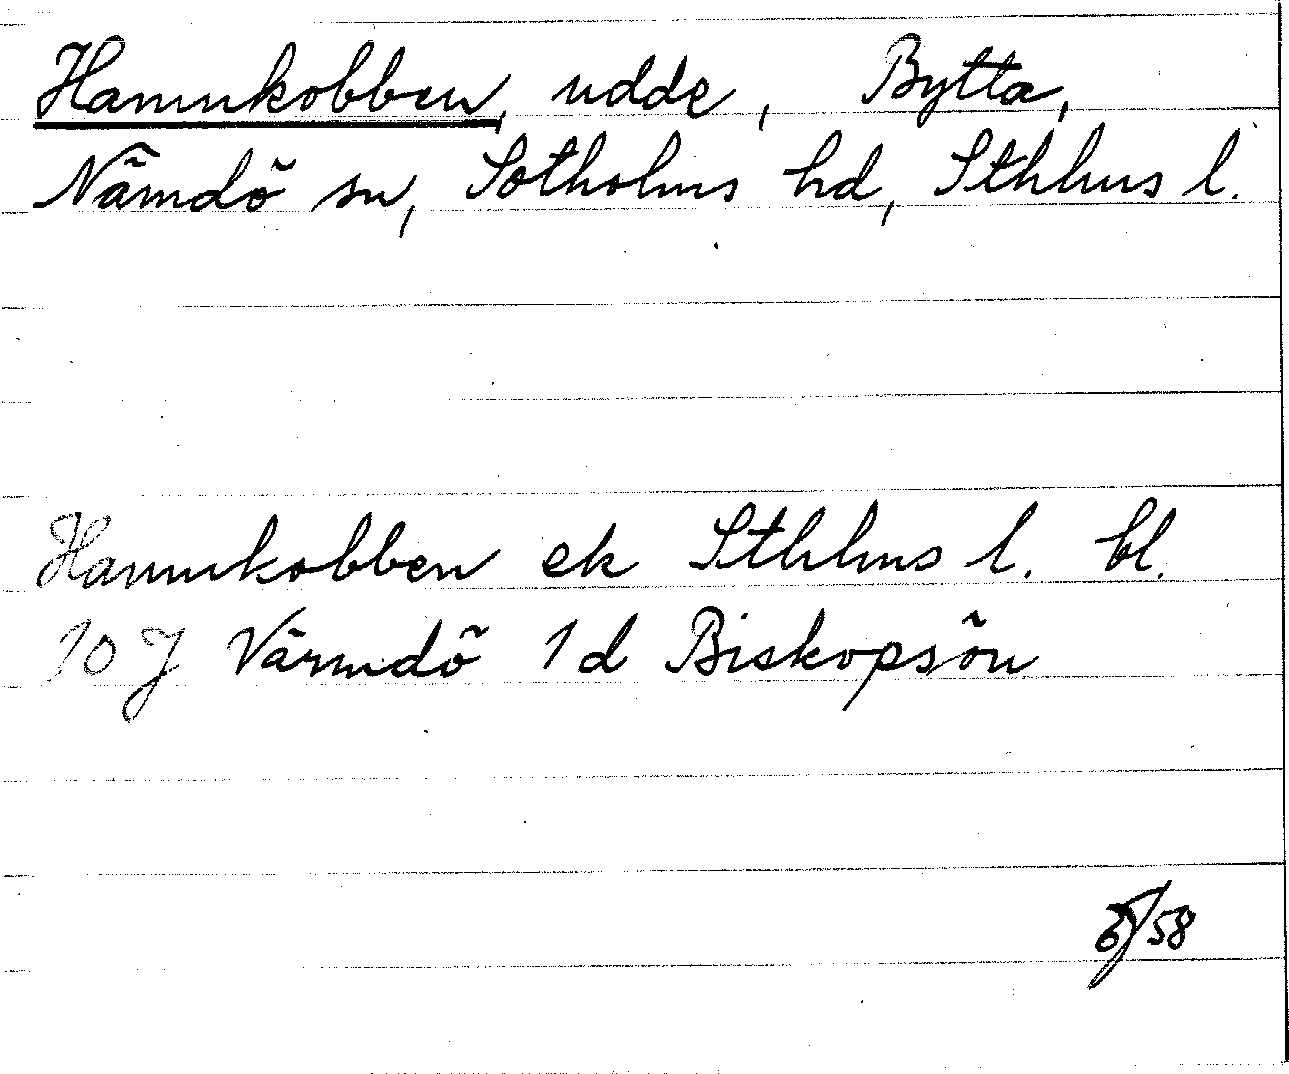 Hamnkobben, udde, Bytta,
Nämdö sn, Sotholms hd, Sthlms l.
Hamnkobben ek Sthlms l. bl.
10 J Värmdö 1 d Biskopsön
/58